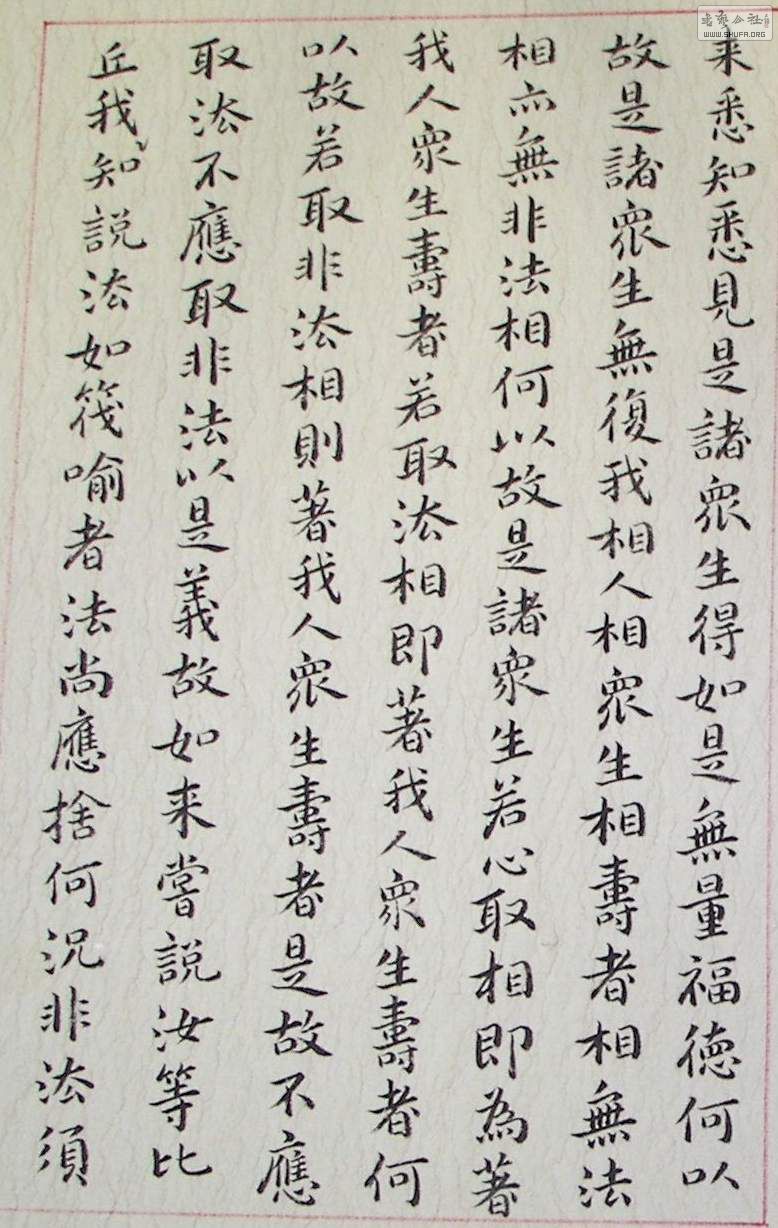 来悉知悉見是諸眾生得如是無量福德何以
故是諸眾生無復我相人相眾生相壽者相無法
相亦無非法相何以故是諸眾生若心取相即為著
我人眾生壽者若取法相即著我人眾生壽者何
以故若取非法相則著我人眾生壽者是故不應
取法不應取非法以是義故如来嘗說汝等比
丘我知説法如筏喻者法尚應捨何況非法須
WWW.SHUFA.ORG